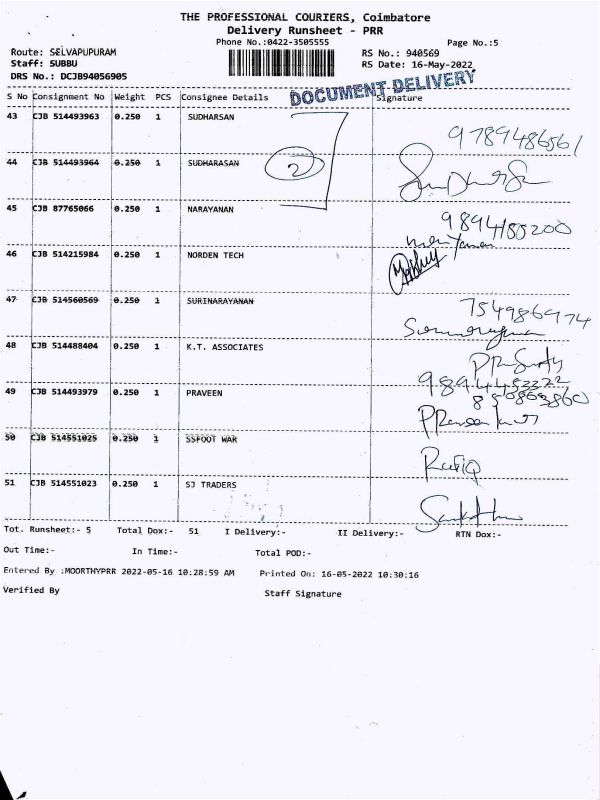 THE PROFESSIONAL COURIERS, Coimbatore
Delivery Runsheet - PRR
Phone No.:0422-3505555
Page No.:5
Route: SELVAPUPURAM
RS No.: 940569
Staff: SUBBU
RS Date: 16-May-2022
DRS No.: DCJB94056905
DOCUMENT DELIVERY
S No Consignment No Weight PCS Consignee Details Signature
43 CJB 514493963 0.250 1 SUDHARSAN
9789486561
44 CJB 514493964 0.250 1 SUDHARASAN
2
45 CJB 87765066 0.250 1 NARAYANAN
9894185200
46 CJB 514215984 0.250 1 NORDEN TECH
47 CJB 514560569 0.250 1 SURINARAYANAN
7549869774
48 CJB 514488404 0.250 1 K.T. ASSOCIATES
49 CJB 514493979 0.250 1 PRAVEEN
50 CJB 514551025 0.250 1 SSFOOT WAR
Rafiq
51 CJB 514551023 0.250 1 SJ TRADERS
Tot. Runsheet:- 5 Total Dox:- 51 I Delivery:- II Delivery:- RTN Dox:-
Out Time:- In Time:- Total POD:-
Entered By :MOORTHYPRR 2022-05-16 10:28:59 AM Printed On: 16-05-2022 10:30:16
Verified By Staff Signature